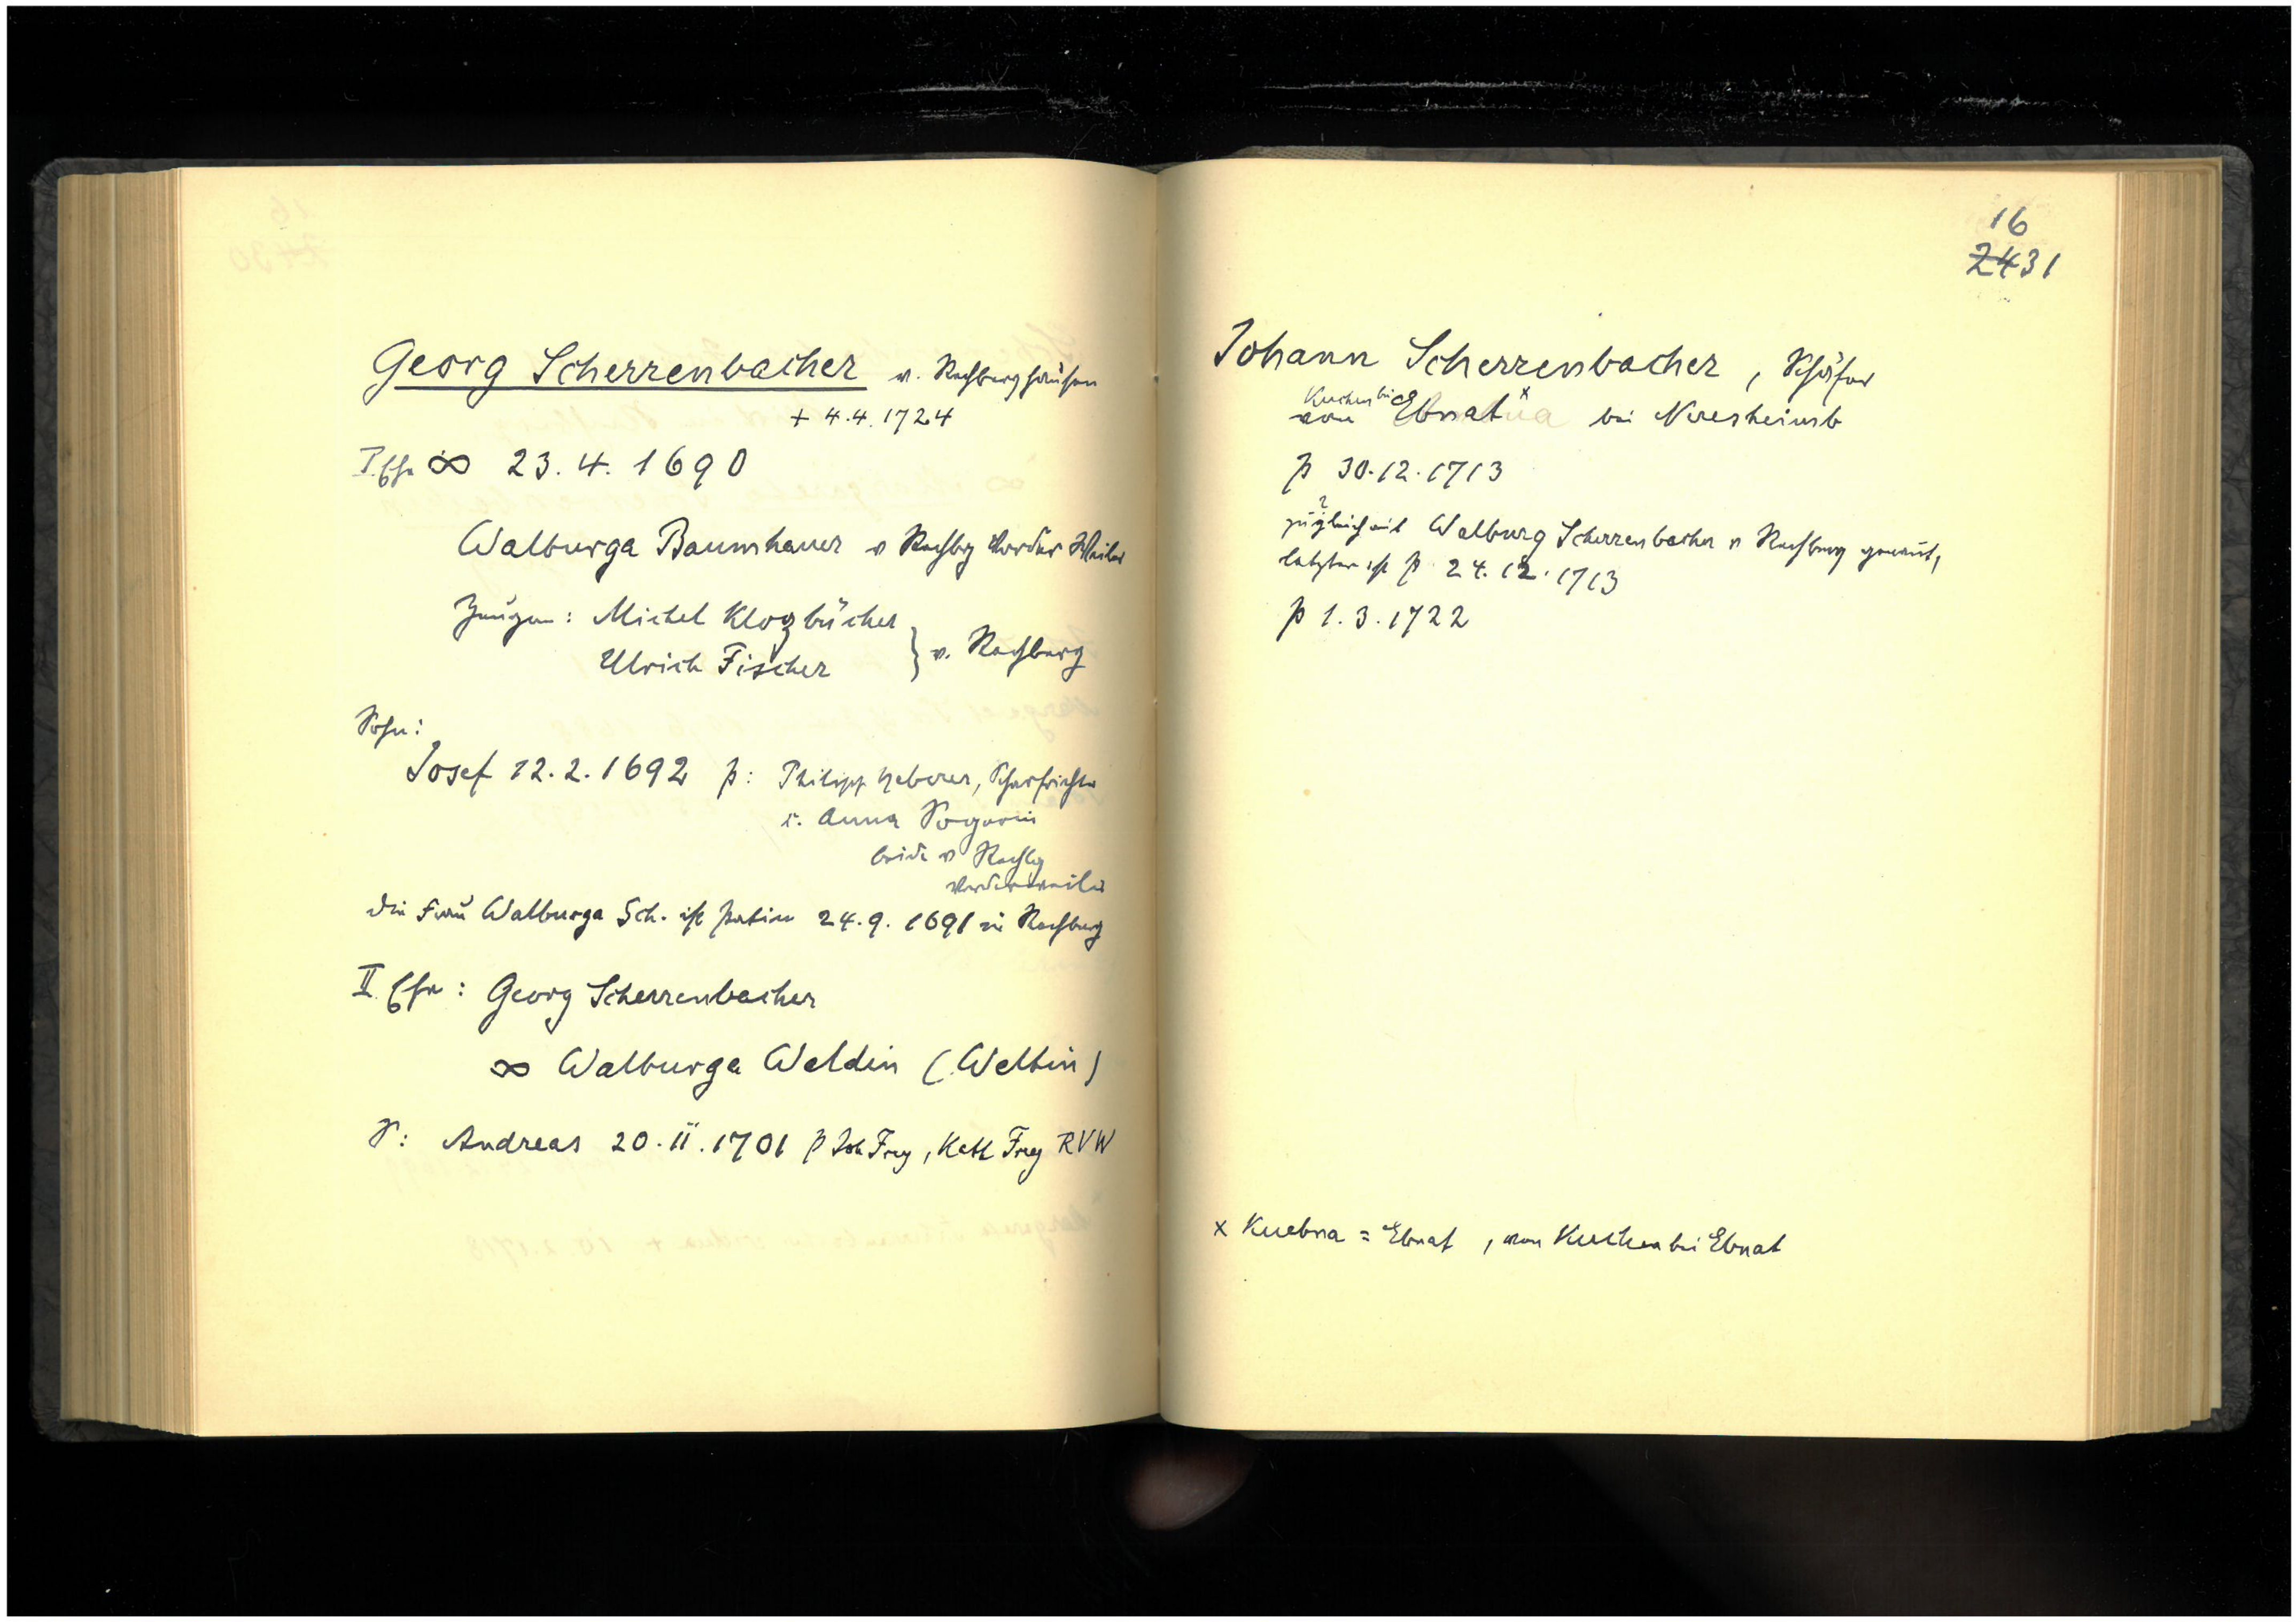 Georg Scherrenbacher v. Rechberghausen
+ 4.4.1724
I. Ehe ∞ 23.4.1690
Walburga Baumhauer v Rechbg Vorder Weiler
Zeugen: Michel Klozbücher
Ulrich Fischer } v. Rechberg
Sohn:
Josef 12.2.1692 p: Philipp Heberer, Scharfrichter
u. Anna
beide v Rechbg
Vorderweiler
die Frau Walburga Sch. ist Patin 24.9.1691 in Rechberg
II. Ehe: Georg Scherrenbacher
∞ Walburga Weldin (Weltin)
S: Andreas 20.11.1701 p Joh Frey, Kath Frey RVW
16
2431
Johann Scherrenbacher, Schäfer
Kuchen bei
von Ebnat x bei Neresheim
p 30.12.1713
?
zugleich mit Walburg Scherrenbacher v Rechberg genannt,
letztere ist p 24.12.1713
p 1.3.1722
x Kuebna = Ebnat, von Kuchen bei Ebnat